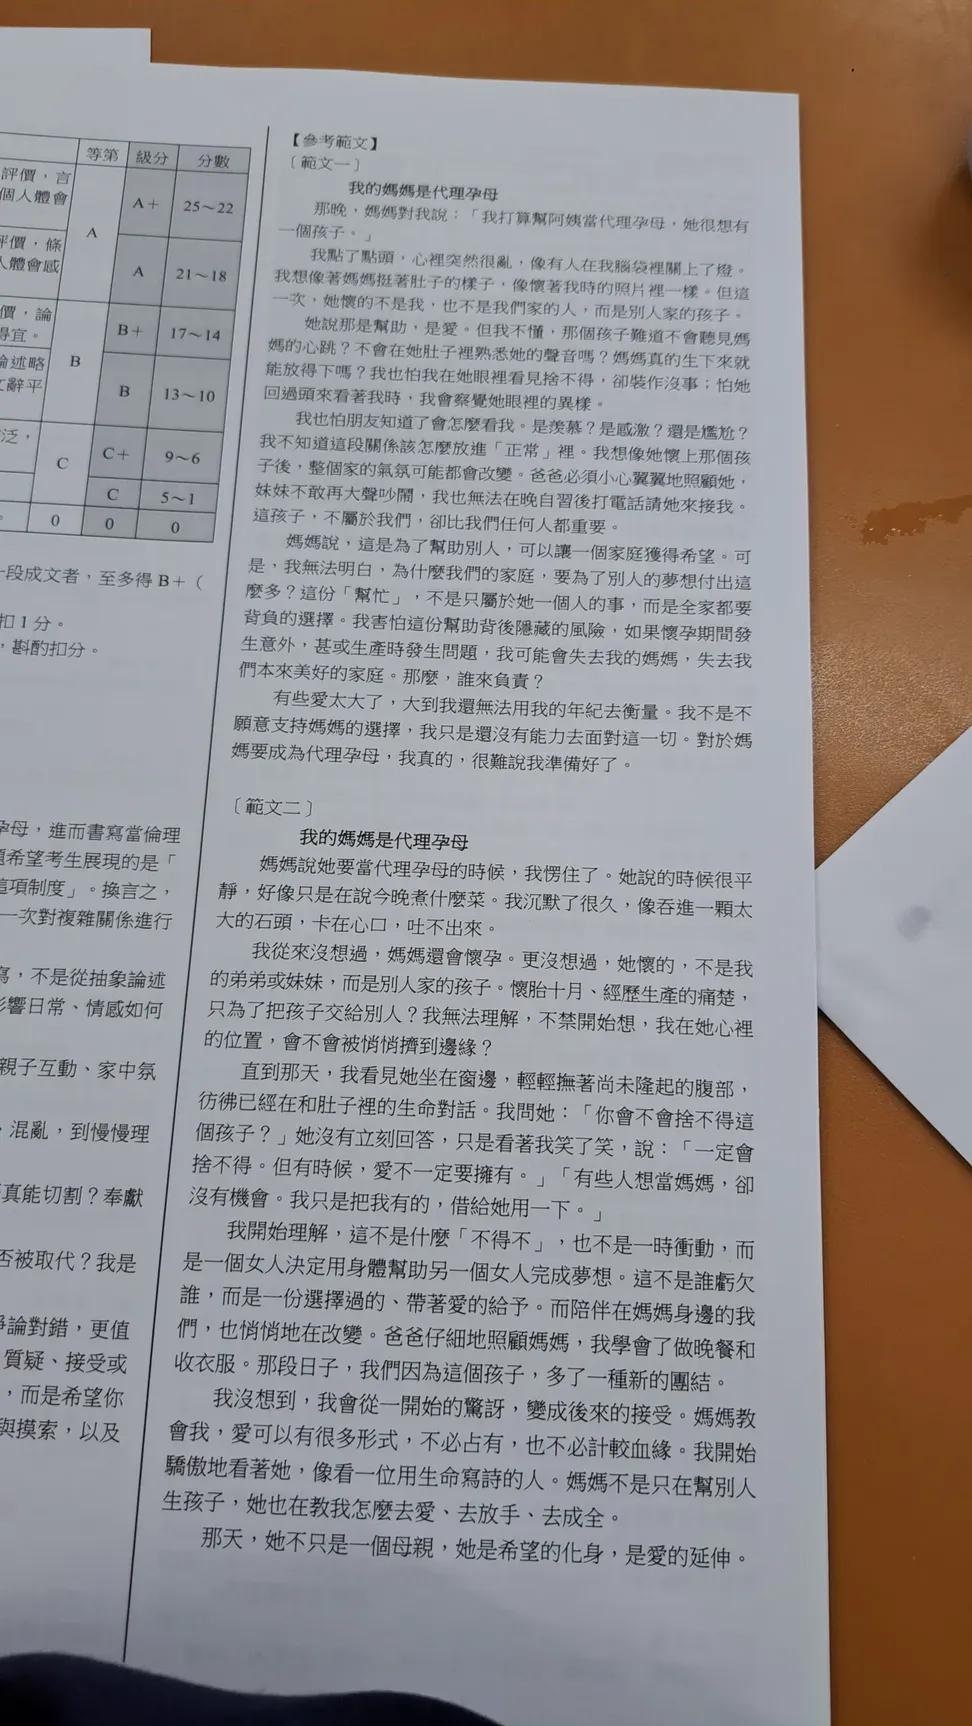 等第 級分 分數
評價，言
個人體會
A
A＋ 25～22
評價，條
人體會感
A 21～18
價，論
得宜。
B
B＋ 17～14
論述略
文辭平
B 13～10
泛，
C
C＋ 9～6
C 5～1
0 0 0
一段成文者，至多得 B＋（
扣 1 分。
，斟酌扣分。
孕母，進而書寫當倫理
題希望考生展現的是「
這項制度」。換言之，
一次對複雜關係進行
寫，不是從抽象論述
影響日常、情感如何
親子互動、家中氛
、混亂，到慢慢理
真能切割？奉獻
否被取代？我是
爭論對錯，更值
質疑、接受或
，而是希望你
與摸索，以及
【參考範文】
〔範文一〕
我的媽媽是代理孕母
那晚，媽媽對我說：「我打算幫阿姨當代理孕母，她很想有
一個孩子。」
我點了點頭，心裡突然很亂，像有人在我腦袋裡關上了燈。
我想像著媽媽挺著肚子的樣子，像懷著我時的照片裡一樣。但這
一次，她懷的不是我，也不是我們家的人，而是別人家的孩子。
她說那是幫助，是愛。但我不懂，那個孩子難道不會聽見媽
媽的心跳？不會在她肚子裡熟悉她的聲音嗎？媽媽真的生下來就
能放得下嗎？我也怕我在她眼裡看見捨不得，卻裝作沒事；怕她
回過頭來看著我時，我會察覺她眼裡的異樣。
我也怕朋友知道了會怎麼看我。是羨慕？是感激？還是尷尬？
我不知道這段關係該怎麼放進「正常」裡。我想像她懷上那個孩
子後，整個家的氣氛可能都會改變。爸爸必須小心翼翼地照顧她，
妹妹不敢再大聲吵鬧，我也無法在晚自習後打電話請她來接我。
這孩子，不屬於我們，卻比我們任何人都重要。
媽媽說，這是為了幫助別人，可以讓一個家庭獲得希望。可
是，我無法明白，為什麼我們的家庭，要為了別人的夢想付出這
麼多？這份「幫忙」，不是只屬於她一個人的事，而是全家都要
背負的選擇。我害怕這份幫助背後隱藏的風險，如果懷孕期間發
生意外，甚或生產時發生問題，我可能會失去我的媽媽，失去我
們本來美好的家庭。那麼，誰來負責？
有些愛太大了，大到我還無法用我的年紀去衡量。我不是不
願意支持媽媽的選擇，我只是還沒有能力去面對這一切。對於媽
媽要成為代理孕母，我真的，很難說我準備好了。
〔範文二〕
我的媽媽是代理孕母
媽媽說她要當代理孕母的時候，我愣住了。她說的時候很平
靜，好像只是在說今晚煮什麼菜。我沉默了很久，像吞進一顆太
大的石頭，卡在心口，吐不出來。
我從來沒想過，媽媽還會懷孕。更沒想過，她懷的，不是我
的弟弟或妹妹，而是別人家的孩子。懷胎十月、經歷生產的痛楚，
只為了把孩子交給別人？我無法理解，不禁開始想，我在她心裡
的位置，會不會被悄悄擠到邊緣？
直到那天，我看見她坐在窗邊，輕輕撫著尚未隆起的腹部，
彷彿已經在和肚子裡的生命對話。我問她：「你會不會捨不得這
個孩子？」她沒有立刻回答，只是看著我笑了笑，說：「一定會
捨不得。但有時候，愛不一定要擁有。」「有些人想當媽媽，卻
沒有機會。我只是把我有的，借給她用一下。」
我開始理解，這不是什麼「不得不」，也不是一時衝動，而
是一個女人決定用身體幫助另一個女人完成夢想。這不是誰虧欠
誰，而是一份選擇過的、帶著愛的給予。而陪伴在媽媽身邊的我
們，也悄悄地在改變。爸爸仔細地照顧媽媽，我學會了做晚餐和
收衣服。那段日子，我們因為這個孩子，多了一種新的團結。
我沒想到，我會從一開始的驚訝，變成後來的接受。媽媽教
會我，愛可以有很多形式，不必占有，也不必計較血緣。我開始
驕傲地看著她，像看一位用生命寫詩的人。媽媽不是只在幫別人
生孩子，她也在教我怎麼去愛、去放手、去成全。
那天，她不只是一個母親，她是希望的化身，是愛的延伸。